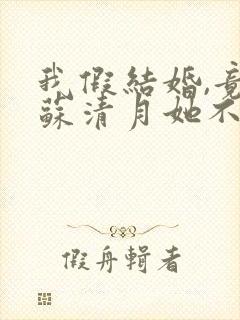 我假結婚,竟
蘇清月她不
假舟輯者